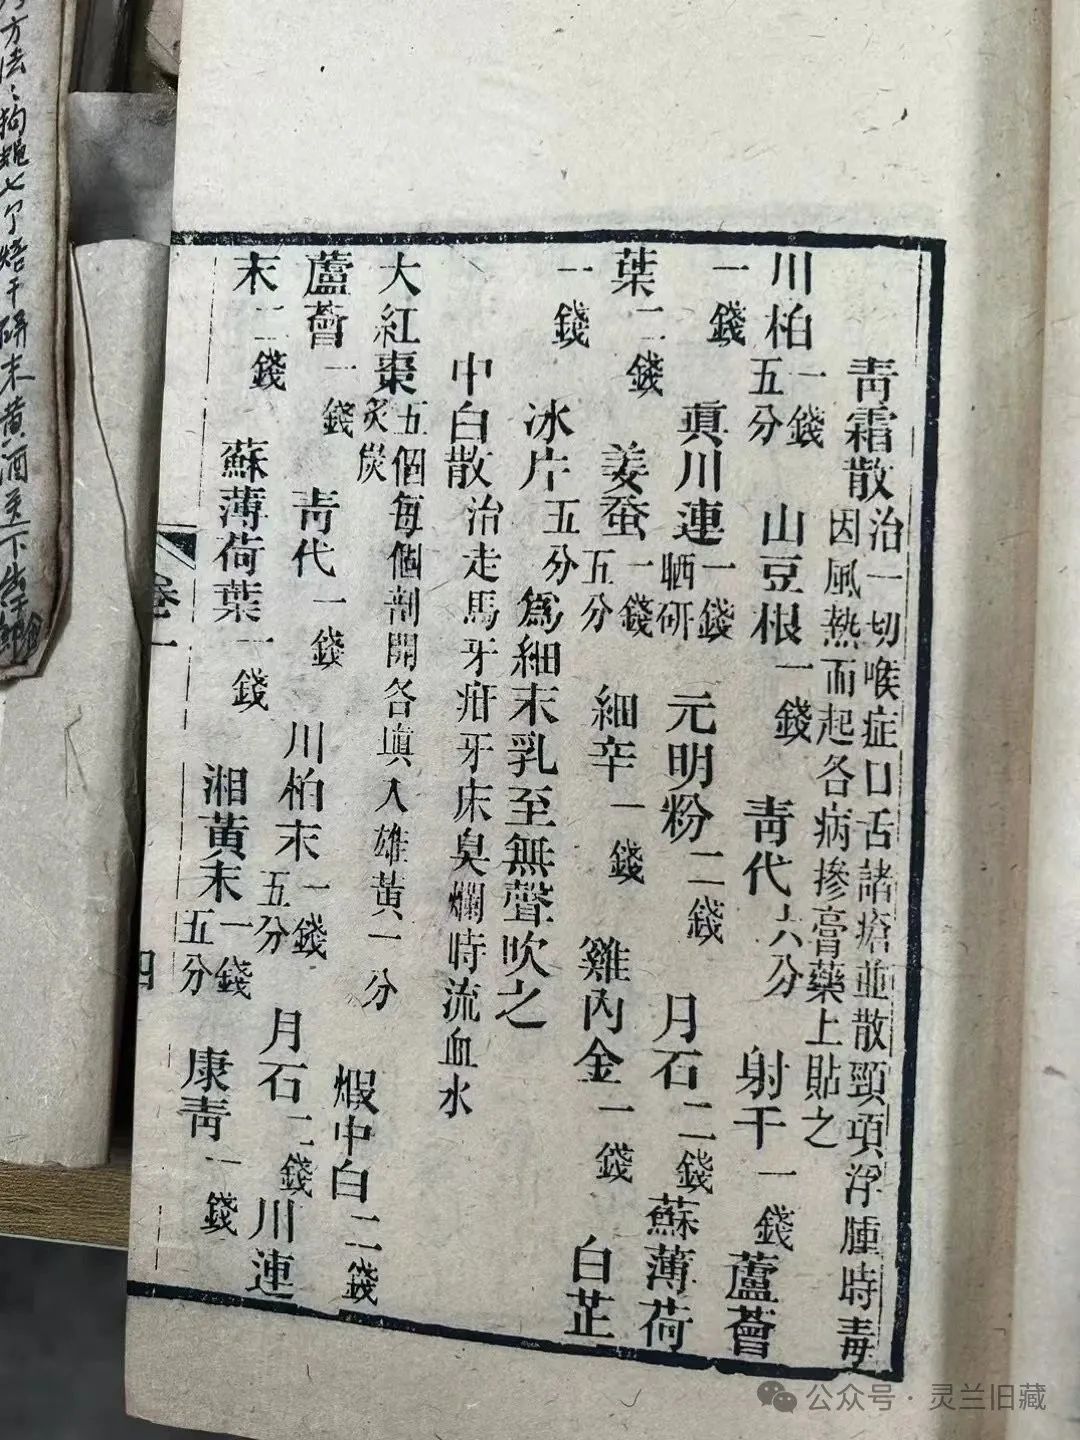 青霜散治一切喉症口舌諸瘡並散頸項浮腫時毒
因風熱而起各病摻膏藥上貼之
川柏一錢五分 山豆根一錢 青代六分 射干一錢 蘆薈
一錢 眞川連一錢晒研 元明粉二錢 月石二錢 蘇薄荷
葉二錢 姜蚕一錢五分 細辛一錢 雞內金一錢 白芷
一錢 冰片五分 爲細末乳至無聲吹之
中白散治走馬牙疳牙床臭爛時流血水
大紅棗五個每個剖開各塡入雄黃一分炙炭 煆中白二錢
蘆薈一錢 青代一錢 川柏末一錢五分 月石二錢 川連
末二錢 蘇薄荷葉一錢 湘黃末一錢五分 康青一錢
卷一
四
方法
研末黄酒
公众号·灵兰旧藏